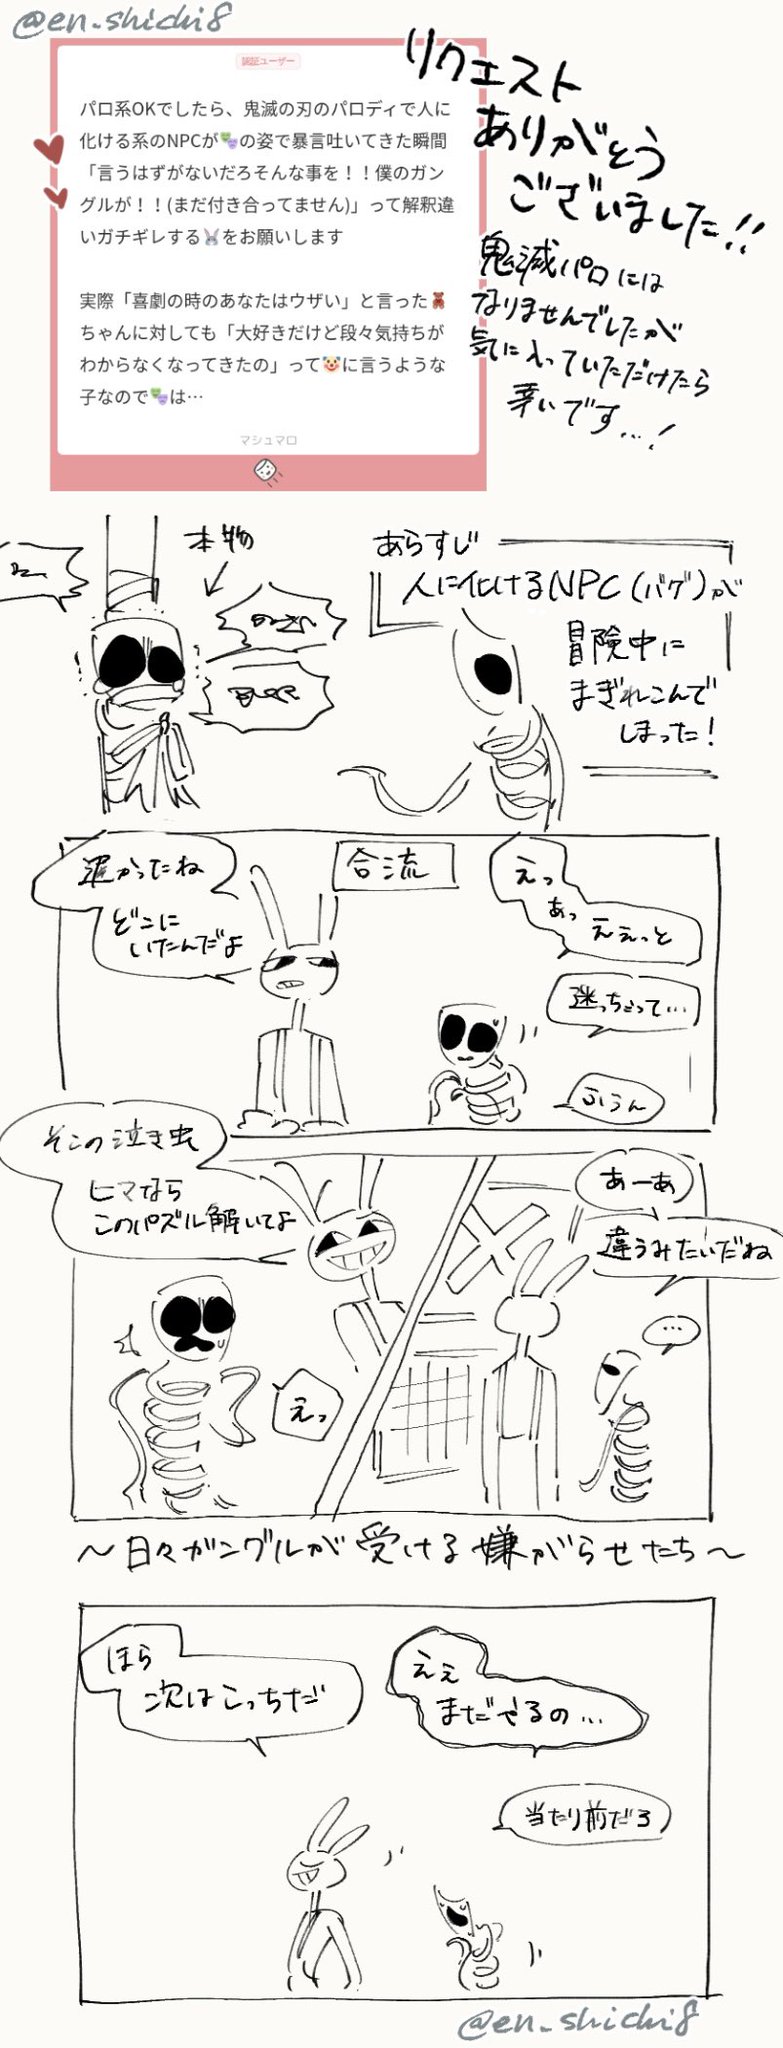 @en_shichi8
認証ユーザー
パロ系OKでしたら、鬼滅の刃のパロディで人に
化ける系のNPCが🎭の姿で暴言吐いてきた瞬間
「言うはずがないだろそんな事を！！僕のガン
グルが！！(まだ付き合ってません)」って解釈違
いガチギレする🐰をお願いします
実際「喜劇の時のあなたはウザい」と言った🧸
ちゃんに対しても「大好きだけど段々気持ちが
わからなくなってきたの」って🤡に言うような
子なので🎭は…
マシュマロ
リクエスト
ありがとう
ございました!!
鬼滅パロには
なりませんでしたが
気に入っていただけたら
幸いです…!
本物
あらすじ
人に化けるNPC(バグ)が
冒険中に
まぎれこんで
しまった!
合流
遅かったね
どこに
いたんだよ
えっ
あっ
ええっと
迷っちゃって…
ふうん
そこの泣き虫
ヒマなら
このパズル解いてよ
えっ
あーあ
違うみたいだね
…
〜日々ガングルが受ける嫌がらせたち〜
ほら
次はこっちだ
ええ
まだやるの…
当たり前だろ
@en_shichi8